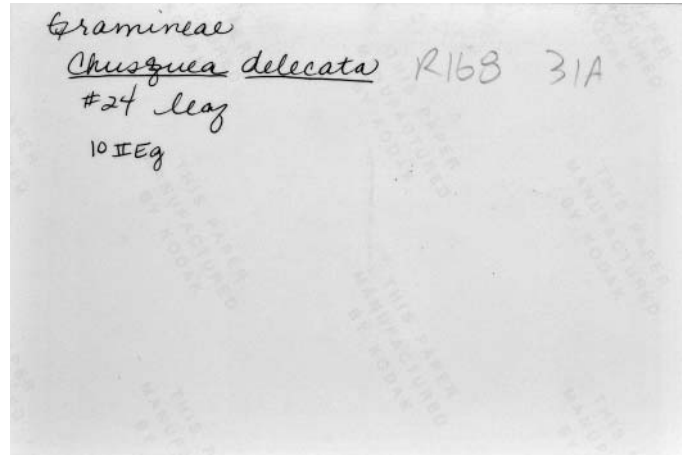 Gramineae
Chusquea delecata R168 31A
#24 leaf
10 II Eg
THIS PAPER
MANUFACTURED
BY KODAK